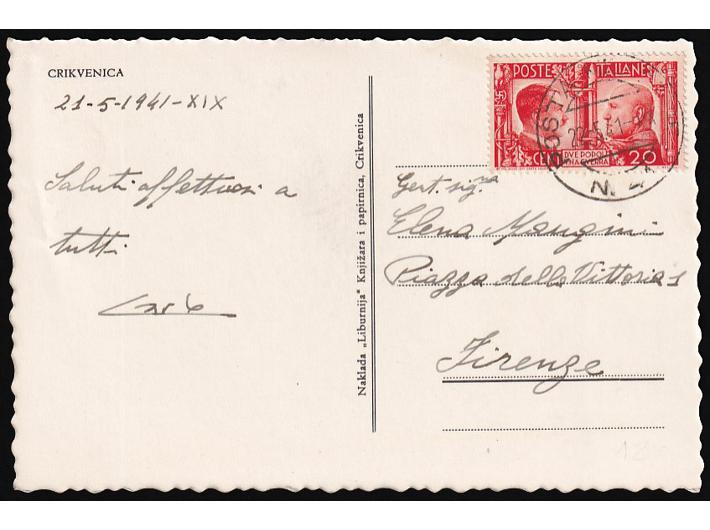 CRIKVENICA
21-5-1941-XIX
Saluti affettuosi a
tutti
Naklada „Liburnija" Knjižara i papirnica, Crikvenica
POSTE ITALIANE
DUE POPOLI
UNA GUERRA
CENT. 20
POSTA
22.5.41
N.
Gent. sig.na
Elena Mangini
Piazza della Vittoria 1
Firenze